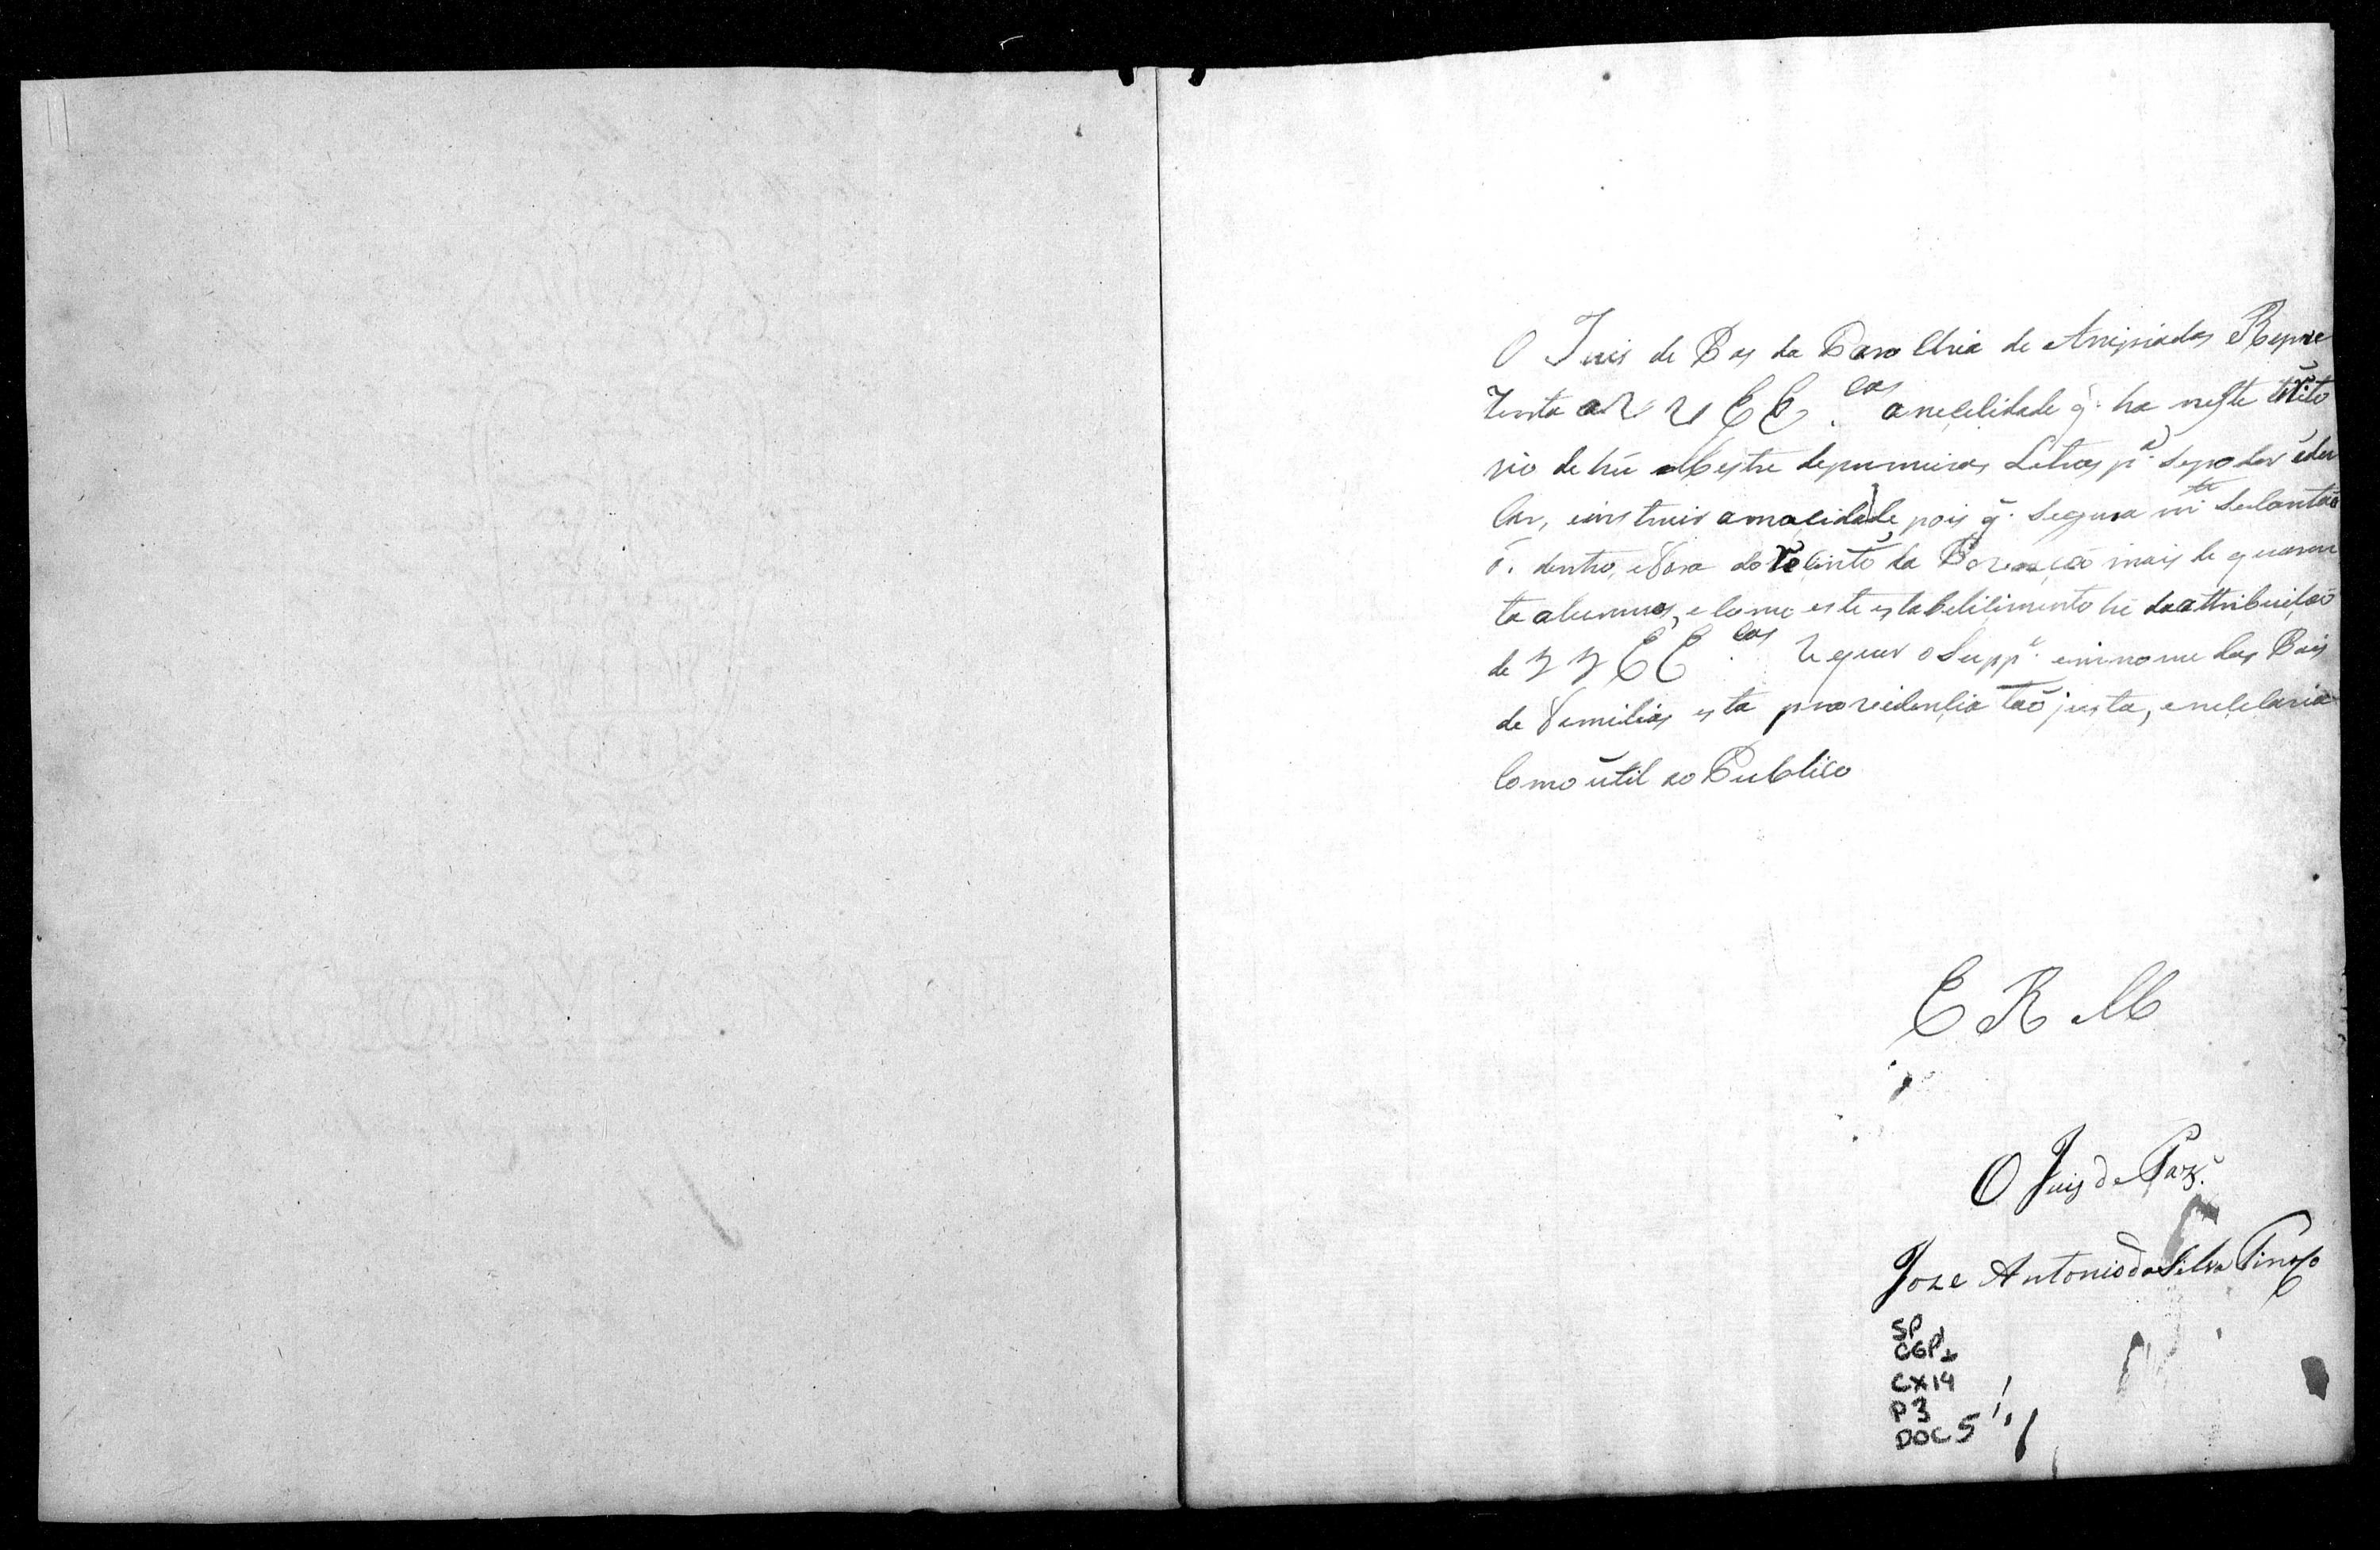 O Juis de Pas da Parochia de Arripiados Repre
zenta a V V E E.cas a necesidade q. ha neste térito
rio de hũ Mestre de primeiras Letras p.a se poder edu
car, e instruir a mocidade, pois q. segura m.ta
dentro, e Fora do recinto da Povoação mais de quaren
ta alumnos, e como este estabelicimento hé da attribuição
de V V E E.cas requer o Supp.e em nome dos Pais
de Familias esta providencia tão justa, e necesaria
como útil ao Publico
E R M
O Juiz de Paz.
Joze Antonio da Silva
SP
CX14
P3
DOC 5